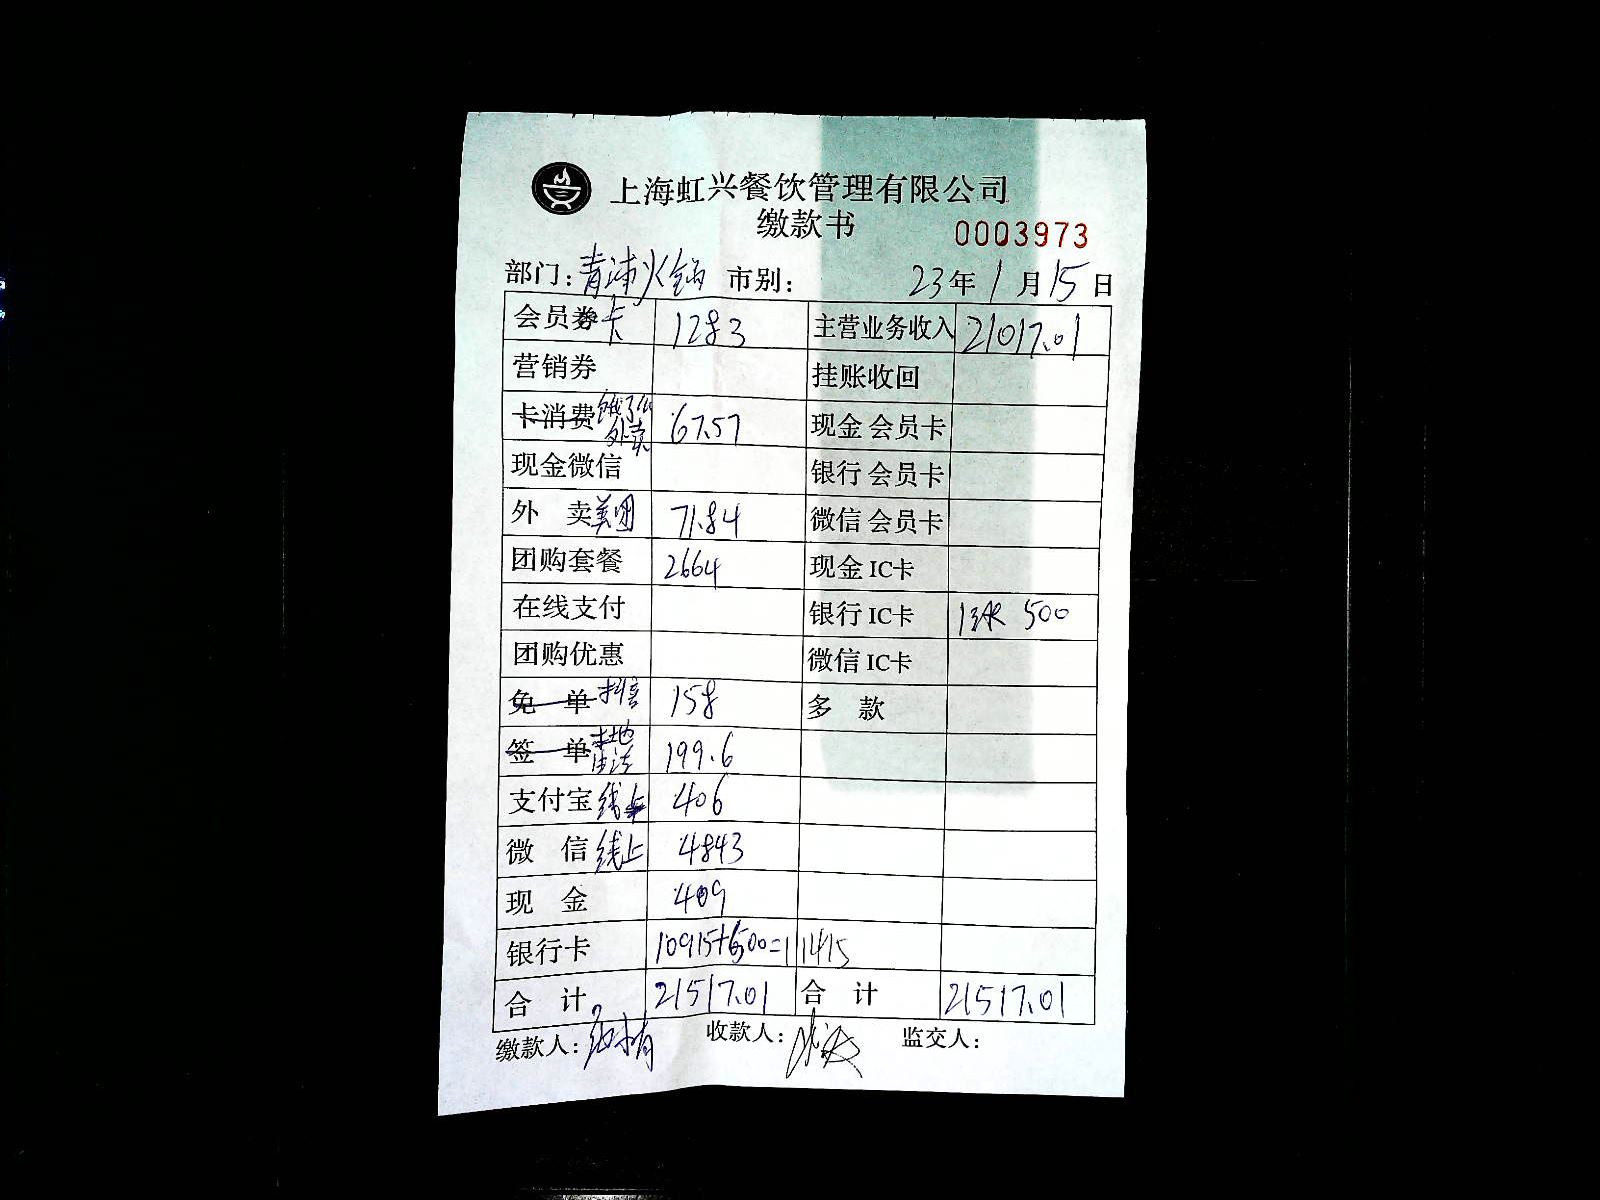 上海虹兴餐饮管理有限公司
缴款书
0003973
部门：青浦火锅 市别： 23年1月15日
会员券卡 1283 主营业务收入 21017.01
营销券 挂账收回
卡消费饿了么外卖 67.57 现金 会员卡
现金微信 银行 会员卡
外 卖美团 71.84 微信 会员卡
团购套餐 2664 现金 IC卡
在线支付 银行 IC卡 1张 500
团购优惠 微信 IC卡
免 单抖音 158 多 款
签 单本地生活 199.6
支付宝线上 406
微 信线上 4843
现 金 409
银行卡 10915+500=11415
合 计 21517.01 合 计 21517.01
缴款人： 收款人： 监交人：